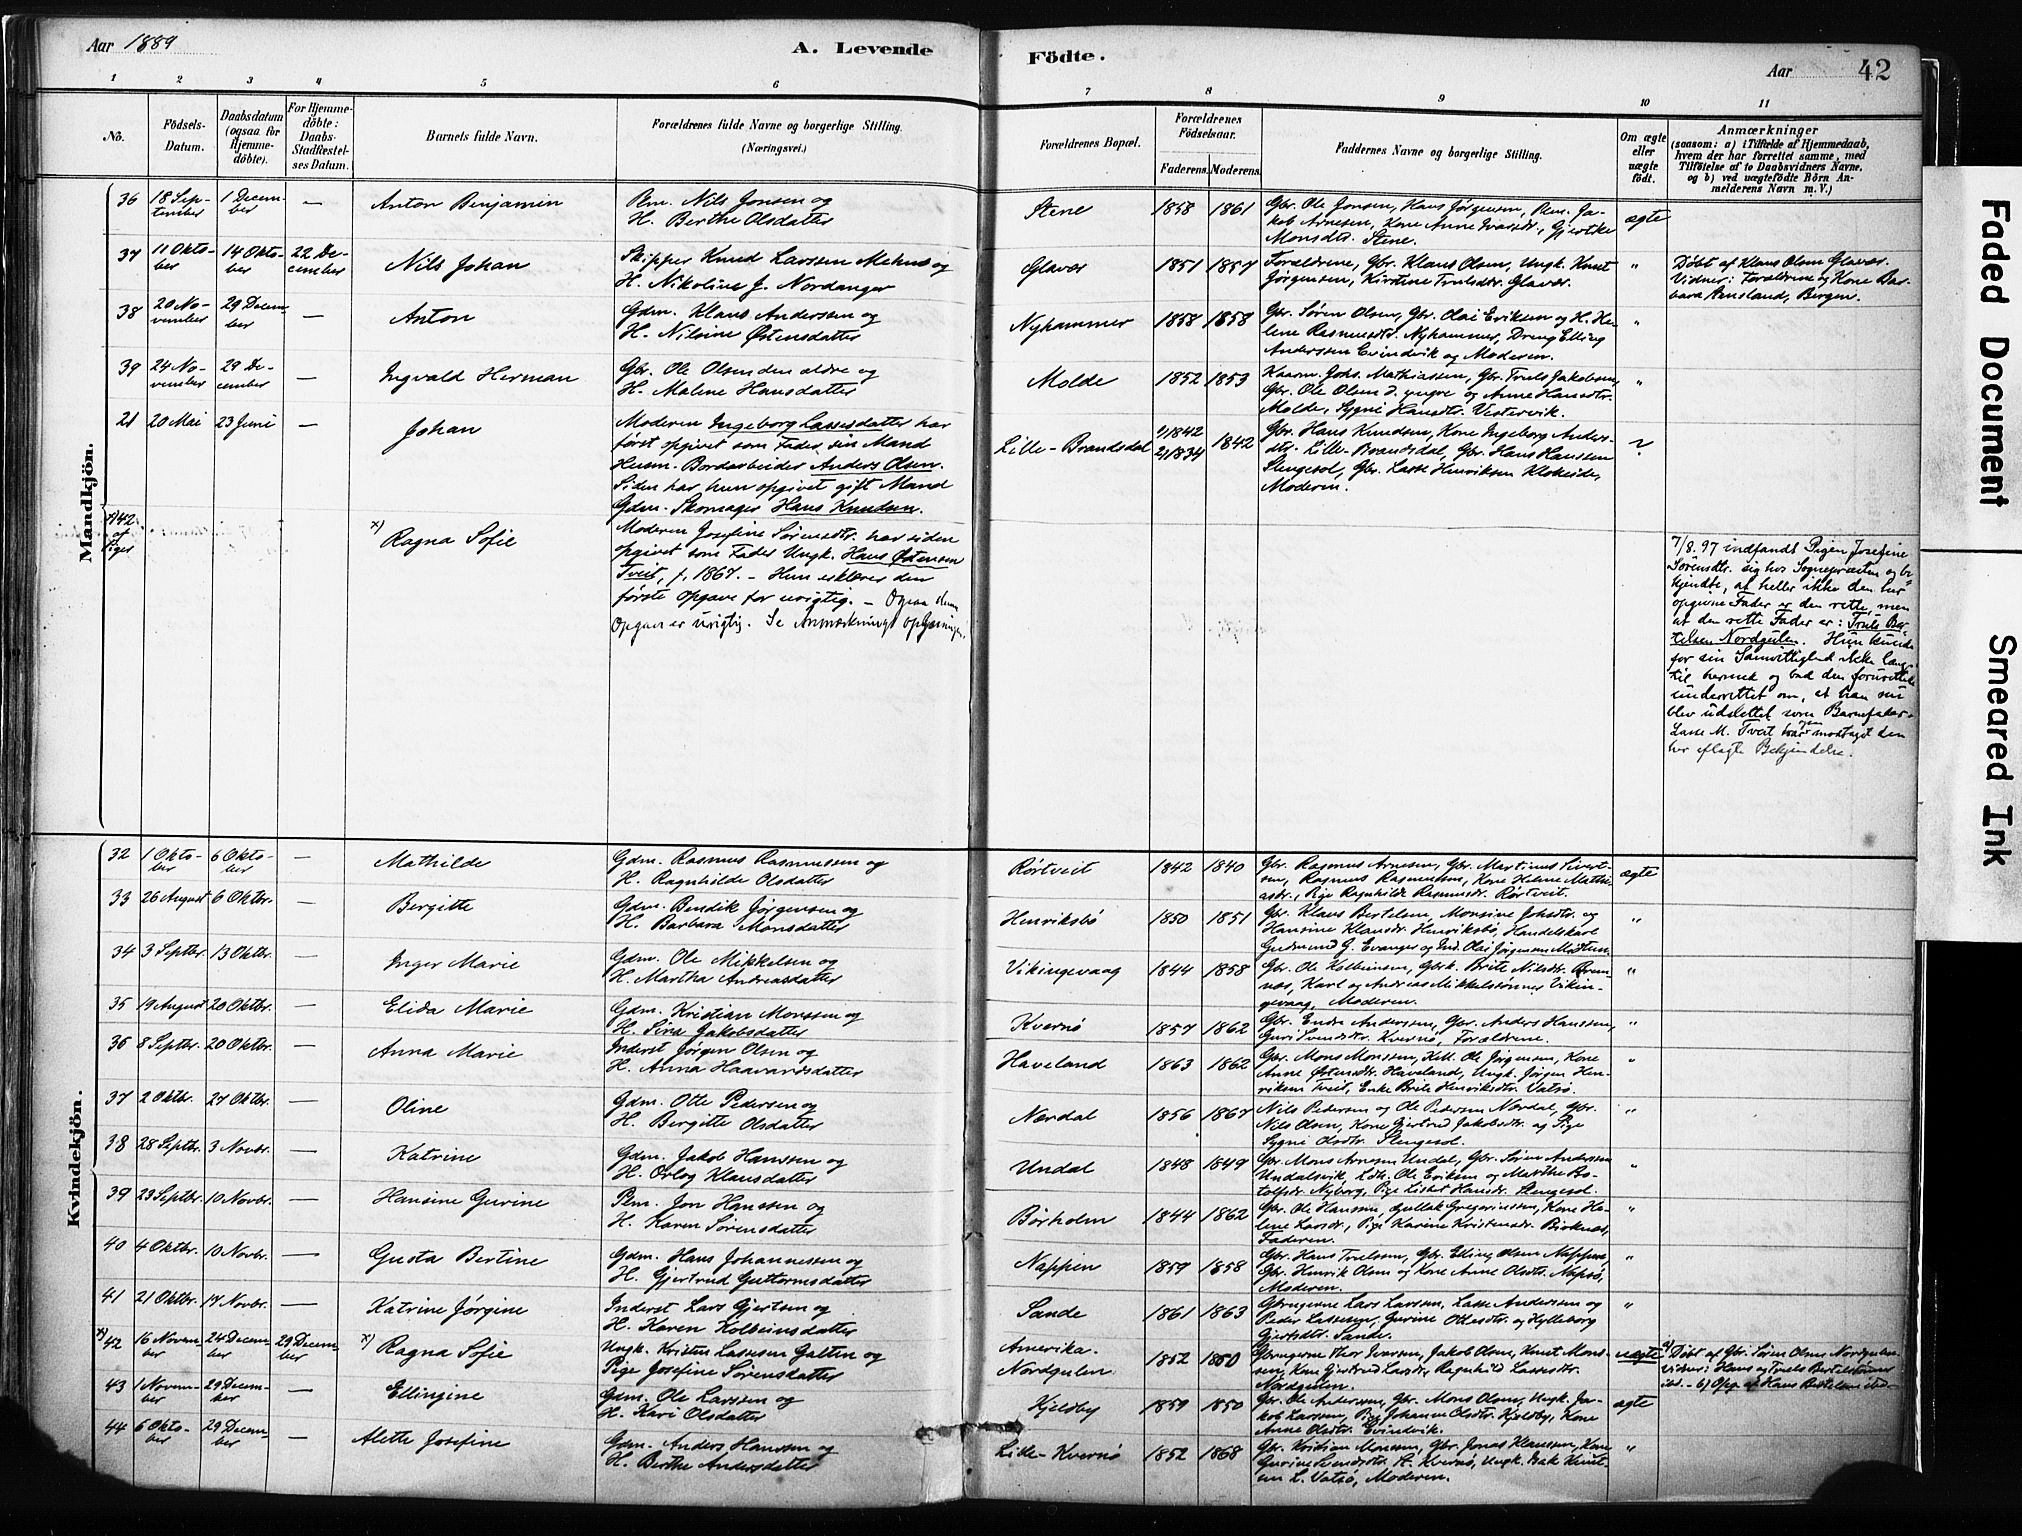 Aar 1889
A. Levende
Födte.
Aar
42
1 2 3 4 5 6 7 8 9 10 11
No.
Födsels-Datum.
Daabsdatum (ogsaa for Hjemmedöbte).
For Hjemmedöbte: Daabs-Stadfæstelses Datum.
Barnets fulde Navn.
Forældrenes fulde Navne og borgerlige Stilling.
(Næringsvei.)
Forældrenes Bopæl.
Forældrenes Födselsaar.
Faderens. Moderens.
Faddernes Navne og borgerlige Stilling.
Om ægte eller uægte födt.
Anmærkninger
(saasom: a) i Tilfælde af Hjemmedaab, hvem der har forrettet samme, med Tilföielse af to Daabsvidners Navne, og b) ved uægtefödte Börn Anmelderens Navn m. V.)
Mandkjön.
36 18 September 1 December — Anton Benjamin
Pm. Nils Jonsen og
H. Berthe Olsdatter
Stene 1858 1861
Gbr. Ole Jonsen, Hans Jørgensen, Pem. Jakob Arnesen, Kone Anne Ivarsdt., Gjertke
Monsdtr. Stene.
ægte
37 11 Oktober 14 Oktober 22 December Nils Johan
Skipper Knud Larssen Mehus og
H. Nikoline J. Nordanger
Glavær 1851 1857
Forældrene, Gbr. Klaus Olsen, Ungk. Knut
Jørgensen, Kirstine Trulsdtr. Glavær.
"
Döbt af Klaus Olsen Glavær.
Vidner: Forældrene og Kone Barbara Aensland, Bergen.
38 20 November 29 December — Anton
Gdm. Klaus Anderssen og
H. Nilsine Østensdatter
Nyhammer 1858 1858
Gbr. Søren Olsen, Gbr. Olai Eriksen og H. Helene Rasmusdtr. Nyhammer, Dreng Elling
Anderssen Evindvik og Moderen.
"
39 24 November 29 December — Ingvald Herman
Gbr. Ole Olsen den ældre og
H. Malene Hansdatter
Molde 1852 1853
Kaarm. Johs. Mathiassen, Gbr. Truls Jakobsen,
Gbr. Ole Olsen d. yngre og Anne Hansdtr.
Molde, Sygni Hansdtr. Vestervik.
"
21 20 Mai 23 Juni — Johan
Moderen Ingeborg Lassesdatter har
først opgivet som Fader sin Mand
Husm. Bordarbeider Anders Olsen.
Siden har hun opgivet gift Mand
Gdm. Skomager Hans Knudsen.
Lille-Brandsdal 1) 1842 2) 1834 1842
Gbr. Hans Knudsen, Kone Ingeborg Andersdtr. Lille-Brandsdal, Gbr. Hans Hanssen
Slengesol, Gbr. Lasse Henriksen Klokeide,
Moderen.
?
x) 42 af Piger
x) Ragna Sofie
Moderen Josefine Sørensdtr. har siden
opgivet som Fader Ungk. Hans Østensen
Tveit, f. 1867. — Hun erklærer den
første opgave for urigtig. — Ogsaa denne
Opgave er urigtig. Se Anmærkningsoplysningen.
7/8. 97 indfandt Pigen Josefine
Sørensdtr. sig hos Sognepræsten og bekjendte, at heller ikke den her
opgivne Fader er den rette, men
at den rette Fader er: Truls Bertelsen Nordgulen. Hun kunde
for sin Samvittighed ikke længer
til hermed og bad den forurettede
underrettet om, at han nu
blev udslettet som Barnefader.
Lasse M. Tveit har modtaget den
her aflagte Bekjendelse.
Kvindekjön.
32 1 Oktober 6 Oktober — Mathilde
Gdm. Rasmus Rasmussen og
H. Ragnhilde Olsdatter
Rørtveit 1842 1840
Gbr. Rasmus Arnesen, Gbr. Martinus Sivertsen, Rasmus Rasmussen, Kone Helene Mathiasdtr., Pige Ragnhilde Rasmusdr. Rørtveit.
ægte
33 26 August 6 Oktbr. — Bergitte
Gdm. Bendik Jørgensen og
H. Barbara Monsdatter
Henriksbø 1850 1851
Gbr. Klaus Bertelsen, Monsine Johsdtr. og
Hansine Klausdr. Henriksbø, Handelskarl
Gudmund G. Evanger og Ind. Olai Jørgensen Midttun.
"
34 3 Septbr. 13 Oktbr. — Inger Marie
Gdm. Ole Mikkelsen og
H. Martha Andreasdatter
Vikingevaag 1844 1858
Gbr. Ole Kolbeinsen, Gbrk. Brite Nilsdtr. Bremnes, Karl og Andreas Mikkelsønner Vikingevaag, Moderen.
"
35 19 August 20 Oktbr. — Elida Marie
Gdm. Kristian Monssen og
H. Sina Jakobsdatter
Kvernø 1857 1862
Gbr. Endre Anderssen, Gbr. Anders Hanssen,
Guri Svendsdtr. Kvernø, Forældrene.
"
36 8 Septbr. 20 Oktbr. — Anna Marie
Inderst Jørgen Olsen og
H. Anna Haavardsdatter
Haveland 1863 1862
Gbr. Mons Monssen, Kall. Ole Jørgensen, Kone
Anne Østensdtr. Haveland, Ungk. Jørgen Henriksen Tveit, Enke Brite Henriksdtr. Vatsø.
"
37 2 Oktbr. 27 Oktbr. — Oline
Gdm. Otte Pedersen og
H. Bergitte Olsdatter
Nordal 1856 1867
Nils Pedersen og Ole Pedersen Nordal, Gbr.
Nils Olsen, Kone Gjertrud Jakobsdtr. og Pige
Sygni Olsdtr. Slengesol.
"
38 28 Septbr. 3 Novbr. — Katrine
Gdm. Jakob Hanssen og
H. Orlog Klausdatter
Undal 1848 1849
Gbr. Mons Arnesen Undal, Gbr. Søren Anderssen
Undalsvik, Ldh. Ole Eriksen og Marthe Botolfsdr. Nyborg, Pige Lisbet Hansdr. Slengesol.
"
39 23 Septbr. 10 Novbr. — Hansine Gurine
Pem. Jon Hanssen og
H. Karen Sørensdatter
Børholm 1844 1862
Gbr. Ole Hanssen, Gullak Gregeriussen, Kone Helene Larsdr., Pige Karine Kristensdr. Birknes,
Faderen.
"
40 4 Oktbr. 10 Novbr. — Gusta Bertine
Gdm. Hans Johannessen og
H. Gjertrud Guttormsdatter
Nappen 1859 1858
Gbr. Hans Trulssen, Gbr. Elling Olsen Nappen,
Gbr. Henrik Olsen og Kone Anne Olsdtr. Napsø,
Moderen.
"
41 21 Oktbr. 17 Novbr. — Katrine Jørgine
Inderst Lars Gjertsen og
H. Karen Kolbeinsdatter
Sande 1861 1863
Gbrugerne Lars Larssen, Lasse Anderssen og
Peder Lassesen, Gurine Ottesdtr. og Hylleborg
Gjertsdtr. Sande.
"
x) 42 16 November 24 December 29 December x) Ragna Sofie
Ungk. Kristen Lassesen Galten og
Pige Josefine Sørensdatter
Amerika. Nordgulen. 1852 1860
Gbrugerne Thor Iversen, Jakob Olsen, Knut Monssen, Kone Gjertrud Larsdtr., Ragnhild Lassesdtr.
Nordgulen.
uægte
a) Döbt af Gbr. Søren Olsen Nordgulen.
Vidner: Hans og Truls Bertelsønner
ibd. — b) Opg. af Hans Bertelsen ibd.
43 1 November 29 December — Ellingine
Gdm. Ole Larssen og
H. Kari Olsdatter
Kjeldby 1859 1850
Gbr. Ole Anderssen, Gbr. Mons Olsen, Ungk. Jakob Larssen, Pige Johanne Olsdtr. Kjeldby, Kone
Anne Olsdtr. Evindvik.
ægte
44 6 Oktober 29 December — Alette Josefine
Gdm. Anders Hanssen og
H. Berthe Andersdatter
Lille-Kvernø 1852 1868
Gbr. Kristian Monssen, Gbr. Jonas Klaussen, Kone
Gurine Svendsdtr. St. Kvernø, Ungk. Isak Knutsen L. Vatsø, Moderen.
"
Faded Document
Smeared Ink